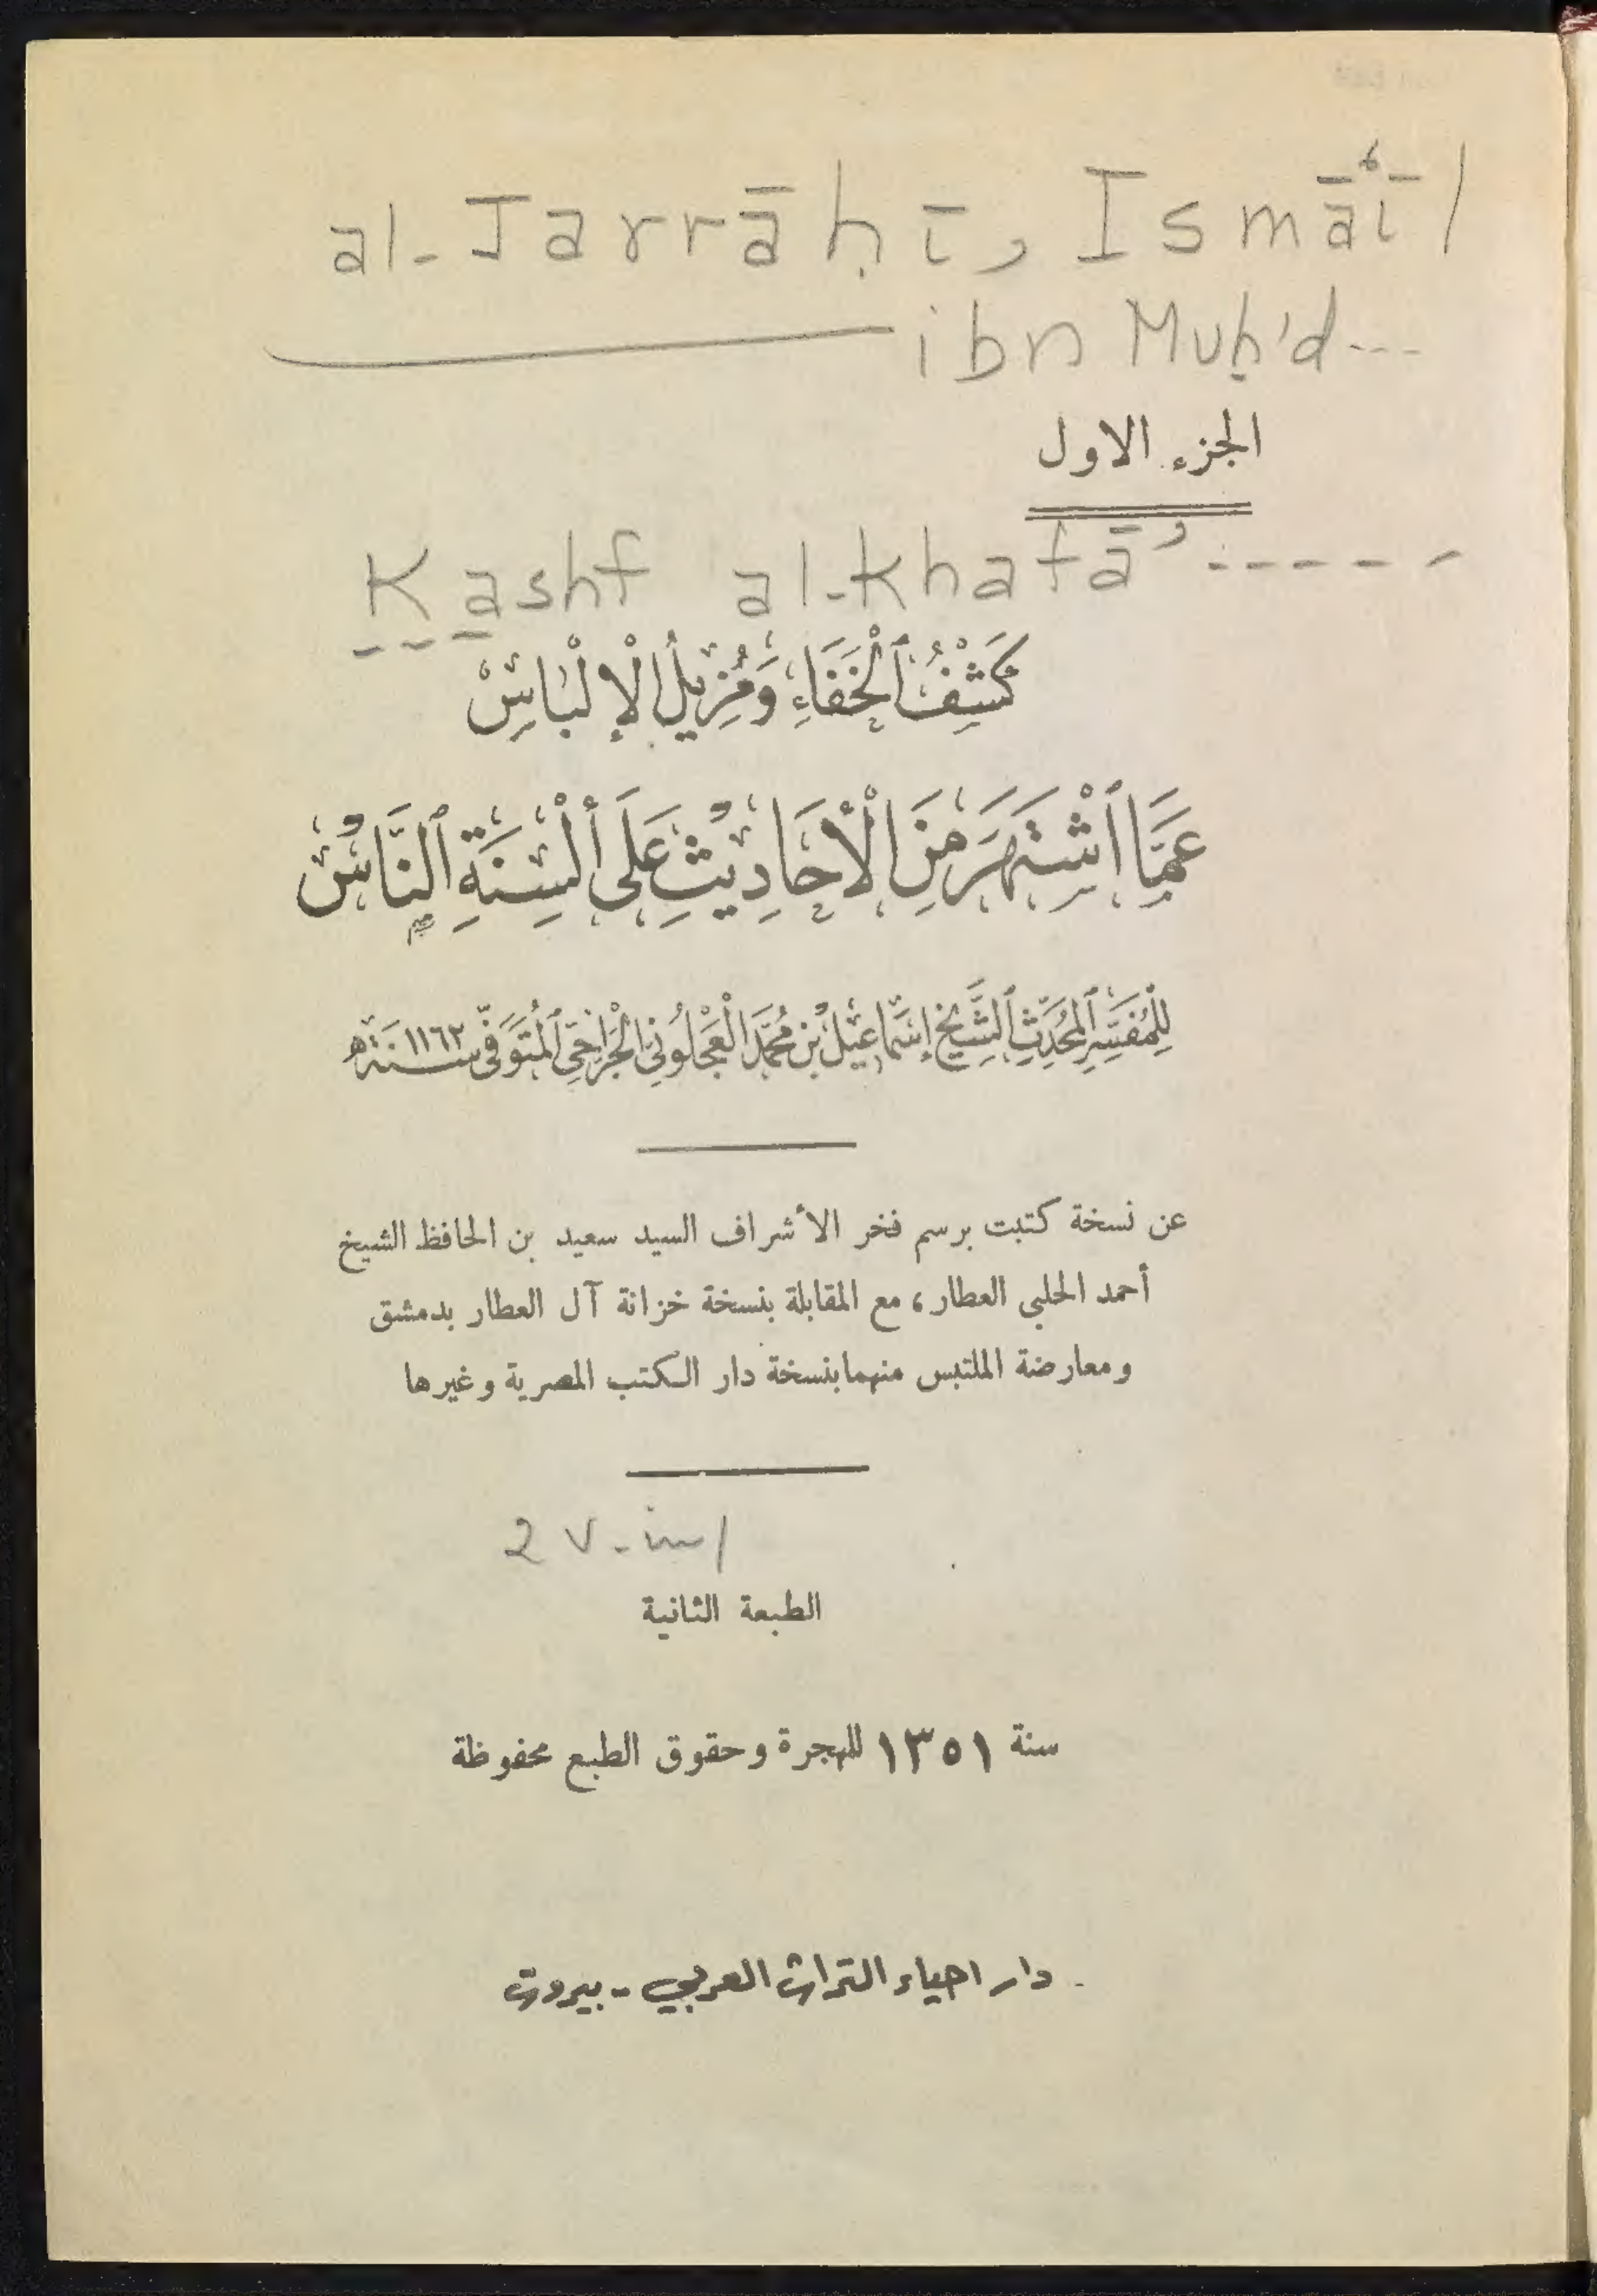 al-Jarrāḥī, Ismāʿīl
ibn Muḥ'd---
الجزء الاول
Kashf al-khafāʾ -----
كَشْفُ ٱلْخَفَاءِ وَمُزِيلُ الْإِلْبَاسِ
عَمَّا ٱشْتَهَرَ مِنَ الْأَحَادِيثِ عَلَى أَلْسِنَةِ ٱلنَّاسِ
لِلْمُفَسِّرِ ٱلْمُحَدِّثِ ٱلشَّيْخِ إِسْمَاعِيلَ بْنِ مُحَمَّدٍ الْعَجْلُونِيِّ الْجَرَّاحِيِّ ٱلْمُتَوَفَّى سَنَةَ ١١٦٢ هـ
عن نسخة كتبت برسم فخر الأشراف السيد سعيد بن الحافظ الشيخ
أحمد الحلبي العطار ، مع المقابلة بنسخة خزانة آل العطار بدمشق
ومعارضة الملتبس منهما بنسخة دار الكتب المصرية وغيرها
2 v. in 1
الطبعة الثانية
سنة ١٣٥١ للهجرة وحقوق الطبع محفوظة
دار احياء التراث العربي - بيروت